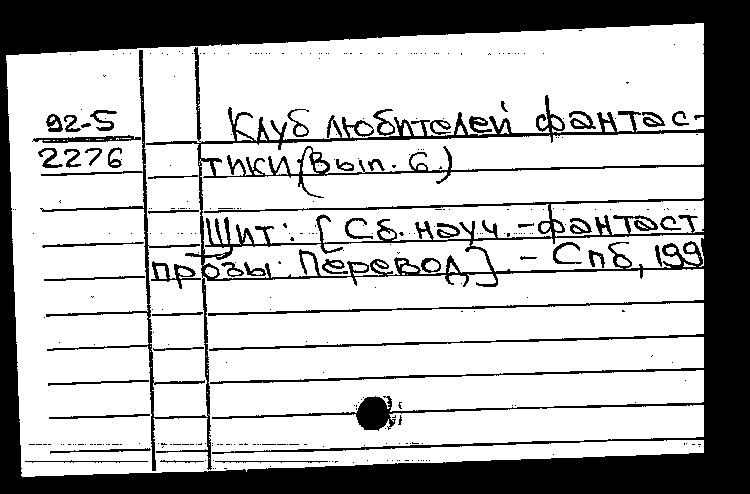 92-5
2276
Клуб любителей фантас-
тики (Вып. 6.)
Щит: [Сб. науч.-фантаст.
прозы: Перевод] - Спб, 199